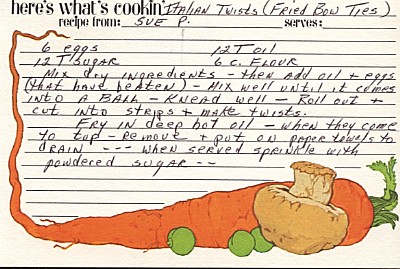 here's what's cookin' Italian Twists (Fried Bow Ties)
recipe from: Sue P. serves:
6 eggs 12 T oil
12 T sugar 6 c. Flour
Mix dry ingredients - then add oil + eggs
(that have beaten) - Mix well until it comes
into a Ball - Knead well - Roll out +
cut into strips + make twists.
Fry in deep hot oil - when they come
to top - remove + put on paper towels to
drain --- when served sprinkle with
powdered sugar --